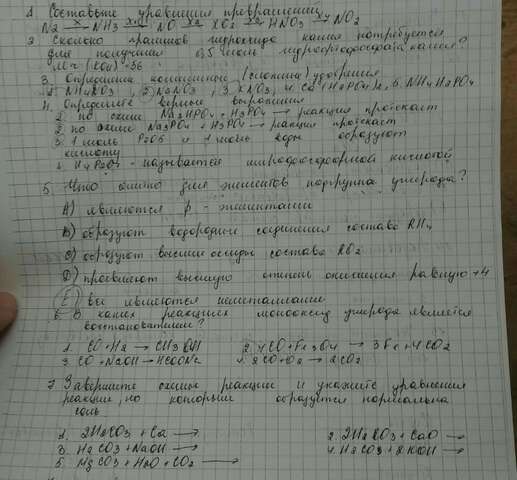 1. Составьте уравнения превращений
N2 → NH3 X1→ NO X2→ XO2 X3→ HNO3 X4→ NO2
2. Сколько граммов гидроксида калия потребуется
для получения 0,5 моль гидрофосфата калия?
Mr (KOH) = 56
3. Определите комплексные (сложные) удобрения
1. NH4NO3, 2) NaNO3, 3. KNO3, 4. Ca(H2PO4)2, 5. NH4H2PO4
4. Определите верные выражения
1. по схеме Na2HPO4 + H3PO4 → реакция протекает
2. по схеме Na3PO4 + H3PO4 → реакция протекает
3. 1 моль P2O5 и 1 моль воды образуют
кислоту
4. H4P2O7 - называется пирофосфорной кислотой
5. Что общо для элементов подгруппы углерода?
A) являются p - элементами
B) образуют водородные соединения состава RH4
C) образуют высшие оксиды состава RO2
D) проявляют высшую степень окисления равную +4
E) все являются неметаллами
6. В каких реакциях монооксид углерода является
восстановителем?
1. CO + H2 → CH3OH 2. 4CO + Fe3O4 → 3Fe + 4CO2
3. CO + NaOH → HCOONa 4. 2CO + O2 → 2CO2
7. Завершите схемы реакции и укажите уравнения
реакции, по которым образуется нормальная
соль
1. 2H2CO3 + Ca → 2. 2H2CO3 + CaO →
3. H2CO3 + NaOH → 4. H2CO3 + 2KOH →
5. MgCO3 + H2O + CO2 →